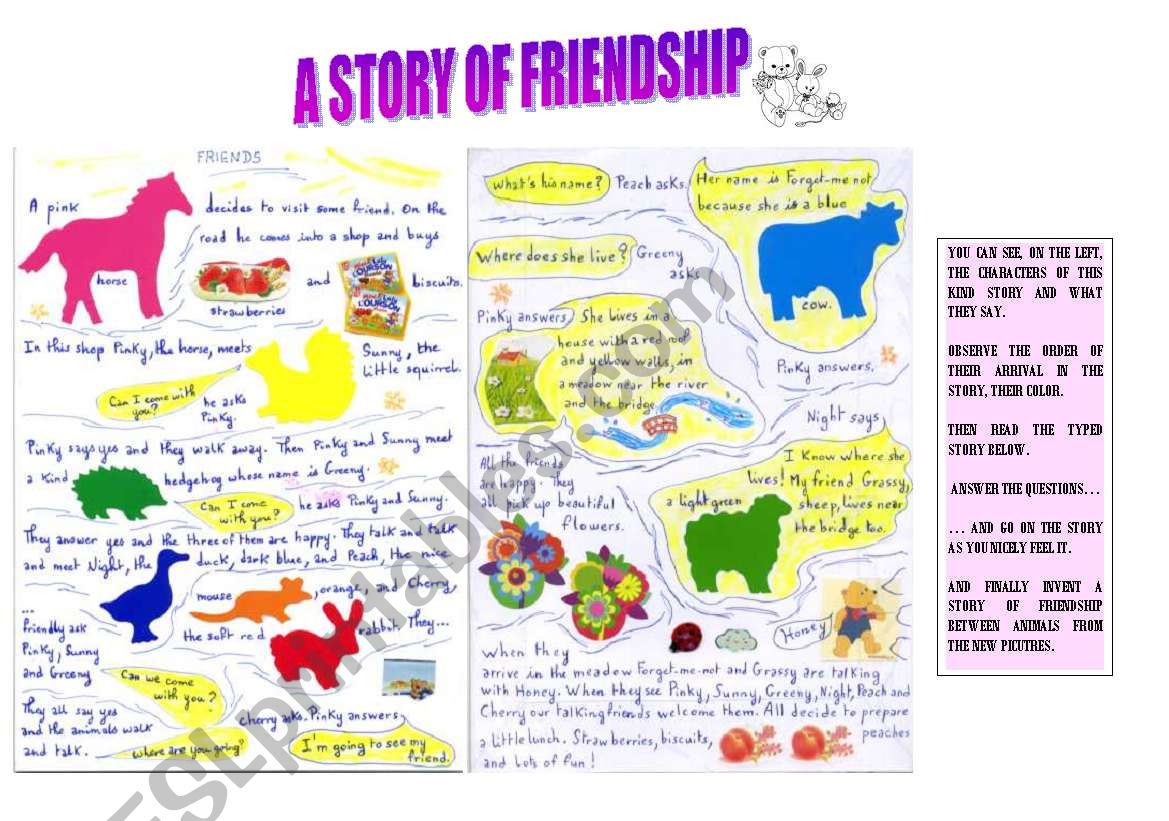 A STORY OF FRIENDSHIP
FRIENDS
A pink
decides to visit some friend. On the
road he comes into a shop and buys
horse
and
biscuits.
strawberries
In this shop Pinky, the horse, meets
Sunny, the
little squirrel.
Can I come with
you?
he asks
Pinky.
Pinky says yes and they walk away. Then Pinky and Sunny meet
a kind
hedgehog whose name is Greeny.
Can I come
with you?
he asks Pinky and Sunny.
They answer yes and the three of them are happy. They talk and talk
and meet Night, the
duck, dark blue, and Peach, the nice
mouse
, orange, and Cherry,
...
the soft red
rabbit. They...
friendly ask
Pinky, Sunny
and Greeny
Can we come
with you?
They all say yes
and the animals walk
and talk.
cherry asks. Pinky answers,
Where are you going?
I'm going to see my
friend.
What's his name?
Peach asks.
Her name is Forget-me not
because she is a blue
cow.
Where does she live?
Greeny
asks
Pinky answers,
Pinky answers,
She lives in a
house with a red roof
and yellow walls, in
a meadow near the river
and the bridge
Night says,
All the friends
are happy. They
all pick up beautiful
flowers.
I know where she
lives! My friend Grassy,
a light green
sheep, lives near
the bridge too.
Honey
When they
arrive in the meadow Forget-me-not and Grassy are talking
with Honey. When they see Pinky, Sunny, Greeny, Night, Peach and
Cherry our talking friends welcome them. All decide to prepare
a little lunch. Strawberries, biscuits,
peaches
and lots of fun!
YOU CAN SEE, ON THE LEFT,
THE CHARACTERS OF THIS
KIND STORY AND WHAT
THEY SAY.
OBSERVE THE ORDER OF
THEIR ARRIVAL IN THE
STORY, THEIR COLOR.
THEN READ THE TYPED
STORY BELOW.
ANSWER THE QUESTIONS...
... AND GO ON THE STORY
AS YOU NICELY FEEL IT.
AND FINALLY INVENT A
STORY OF FRIENDSHIP
BETWEEN ANIMALS FROM
THE NEW PICUTRES.
ESLprintables.com